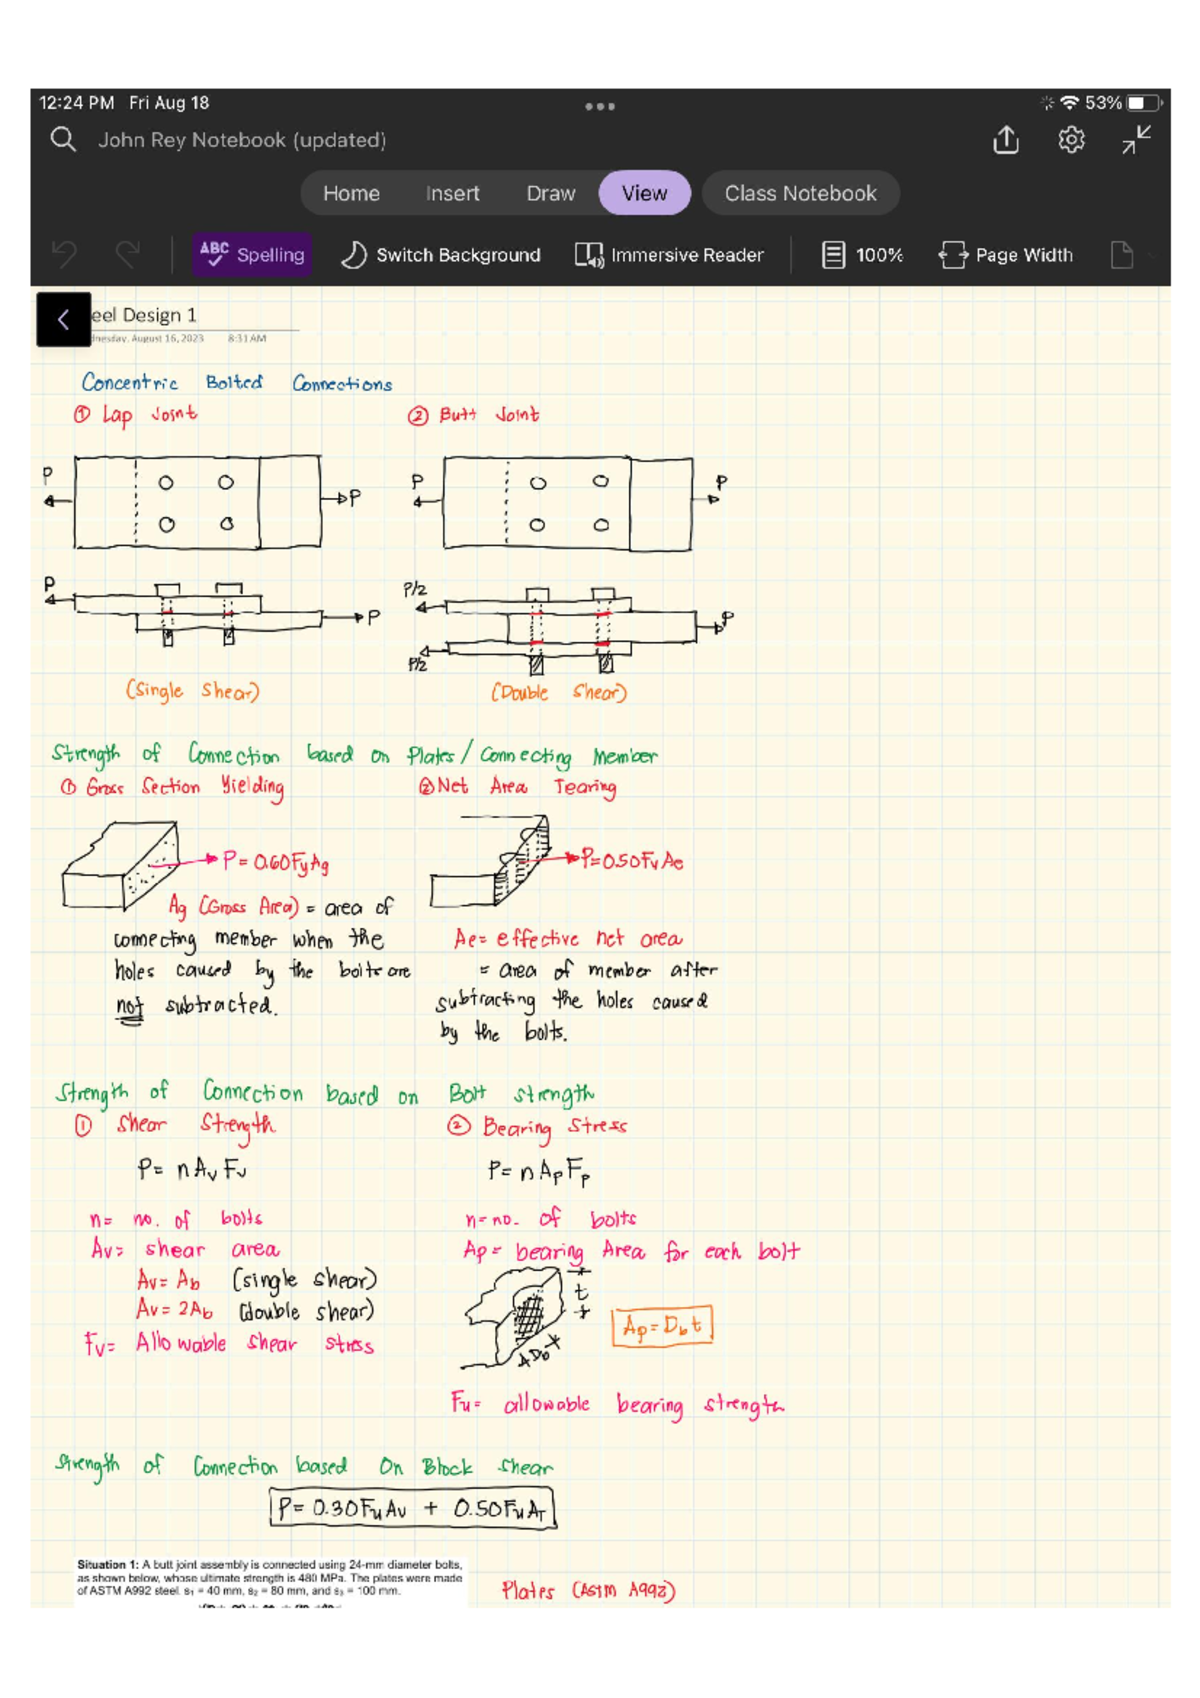 12:24 PM Fri Aug 18
53%
John Rey Notebook (updated)
Home Insert Draw View Class Notebook
ABC Spelling Switch Background Immersive Reader 100% Page Width
eel Design 1
dnesday, August 16, 2023 8:31 AM
Concentric Bolted Connections
① Lap Joint ② Butt Joint
P P P P
P P P/2 P
P/2
(Single Shear) (Double Shear)
Strength of Connection based on Plates / Connecting Member
① Gross Section Yielding ② Net Area Tearing
P = 0.60FyAg P=0.50FuAe
Ag (Gross Area) = area of
connecting member when the
holes caused by the bolts are
not subtracted.
Ae = effective net area
= area of member after
subtracting the holes caused
by the bolts.
Strength of Connection based on Bolt strength
① Shear Strength ② Bearing Stress
P= nAvFv P= nApFp
n= no. of bolts
Av= shear area
Av= Ab (single shear)
Av= 2Ab (double shear)
Fv= Allowable shear stress
n=no. of bolts
Ap= bearing Area for each bolt
t
Db
Ap=Dbt
Fu= allowable bearing strength
Strength of Connection based On Block shear
P= 0.30FuAv + 0.50FuAT
Situation 1: A butt joint assembly is connected using 24-mm diameter bolts,
as shown below, whose ultimate strength is 480 MPa. The plates were made
of ASTM A992 steel. s₁ = 40 mm, s₂ = 80 mm, and s₃ = 100 mm.
Plates (ASTM A992)